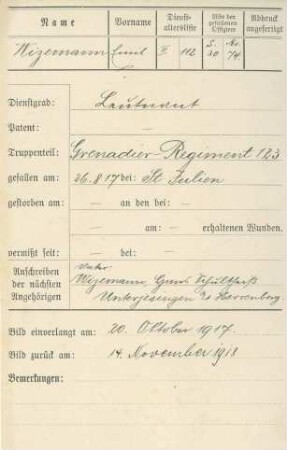 Name Vorname Dienst-altersliste Liste der gefallenen Offiziere Abdruck angefertigt
Wizemann Emil II 112 S. 30 No. 74
Dienstgrad: Leutnant
Patent: —
Truppenteil: Grenadier-Regiment 123
gefallen am: 26.8.17 bei: St Julien
gestorben am: — an den bei: —
— am: — erhaltenen Wunden.
vermißt seit: — bei: —
Anschreiben der nächsten Angehörigen
Vater:
Wizemann, Schultheiß
Unterjesingen Herrenberg
Bild einverlangt am: 20. Oktober 1917.
Bild zurück am: 14. November 1918
Bemerkungen: